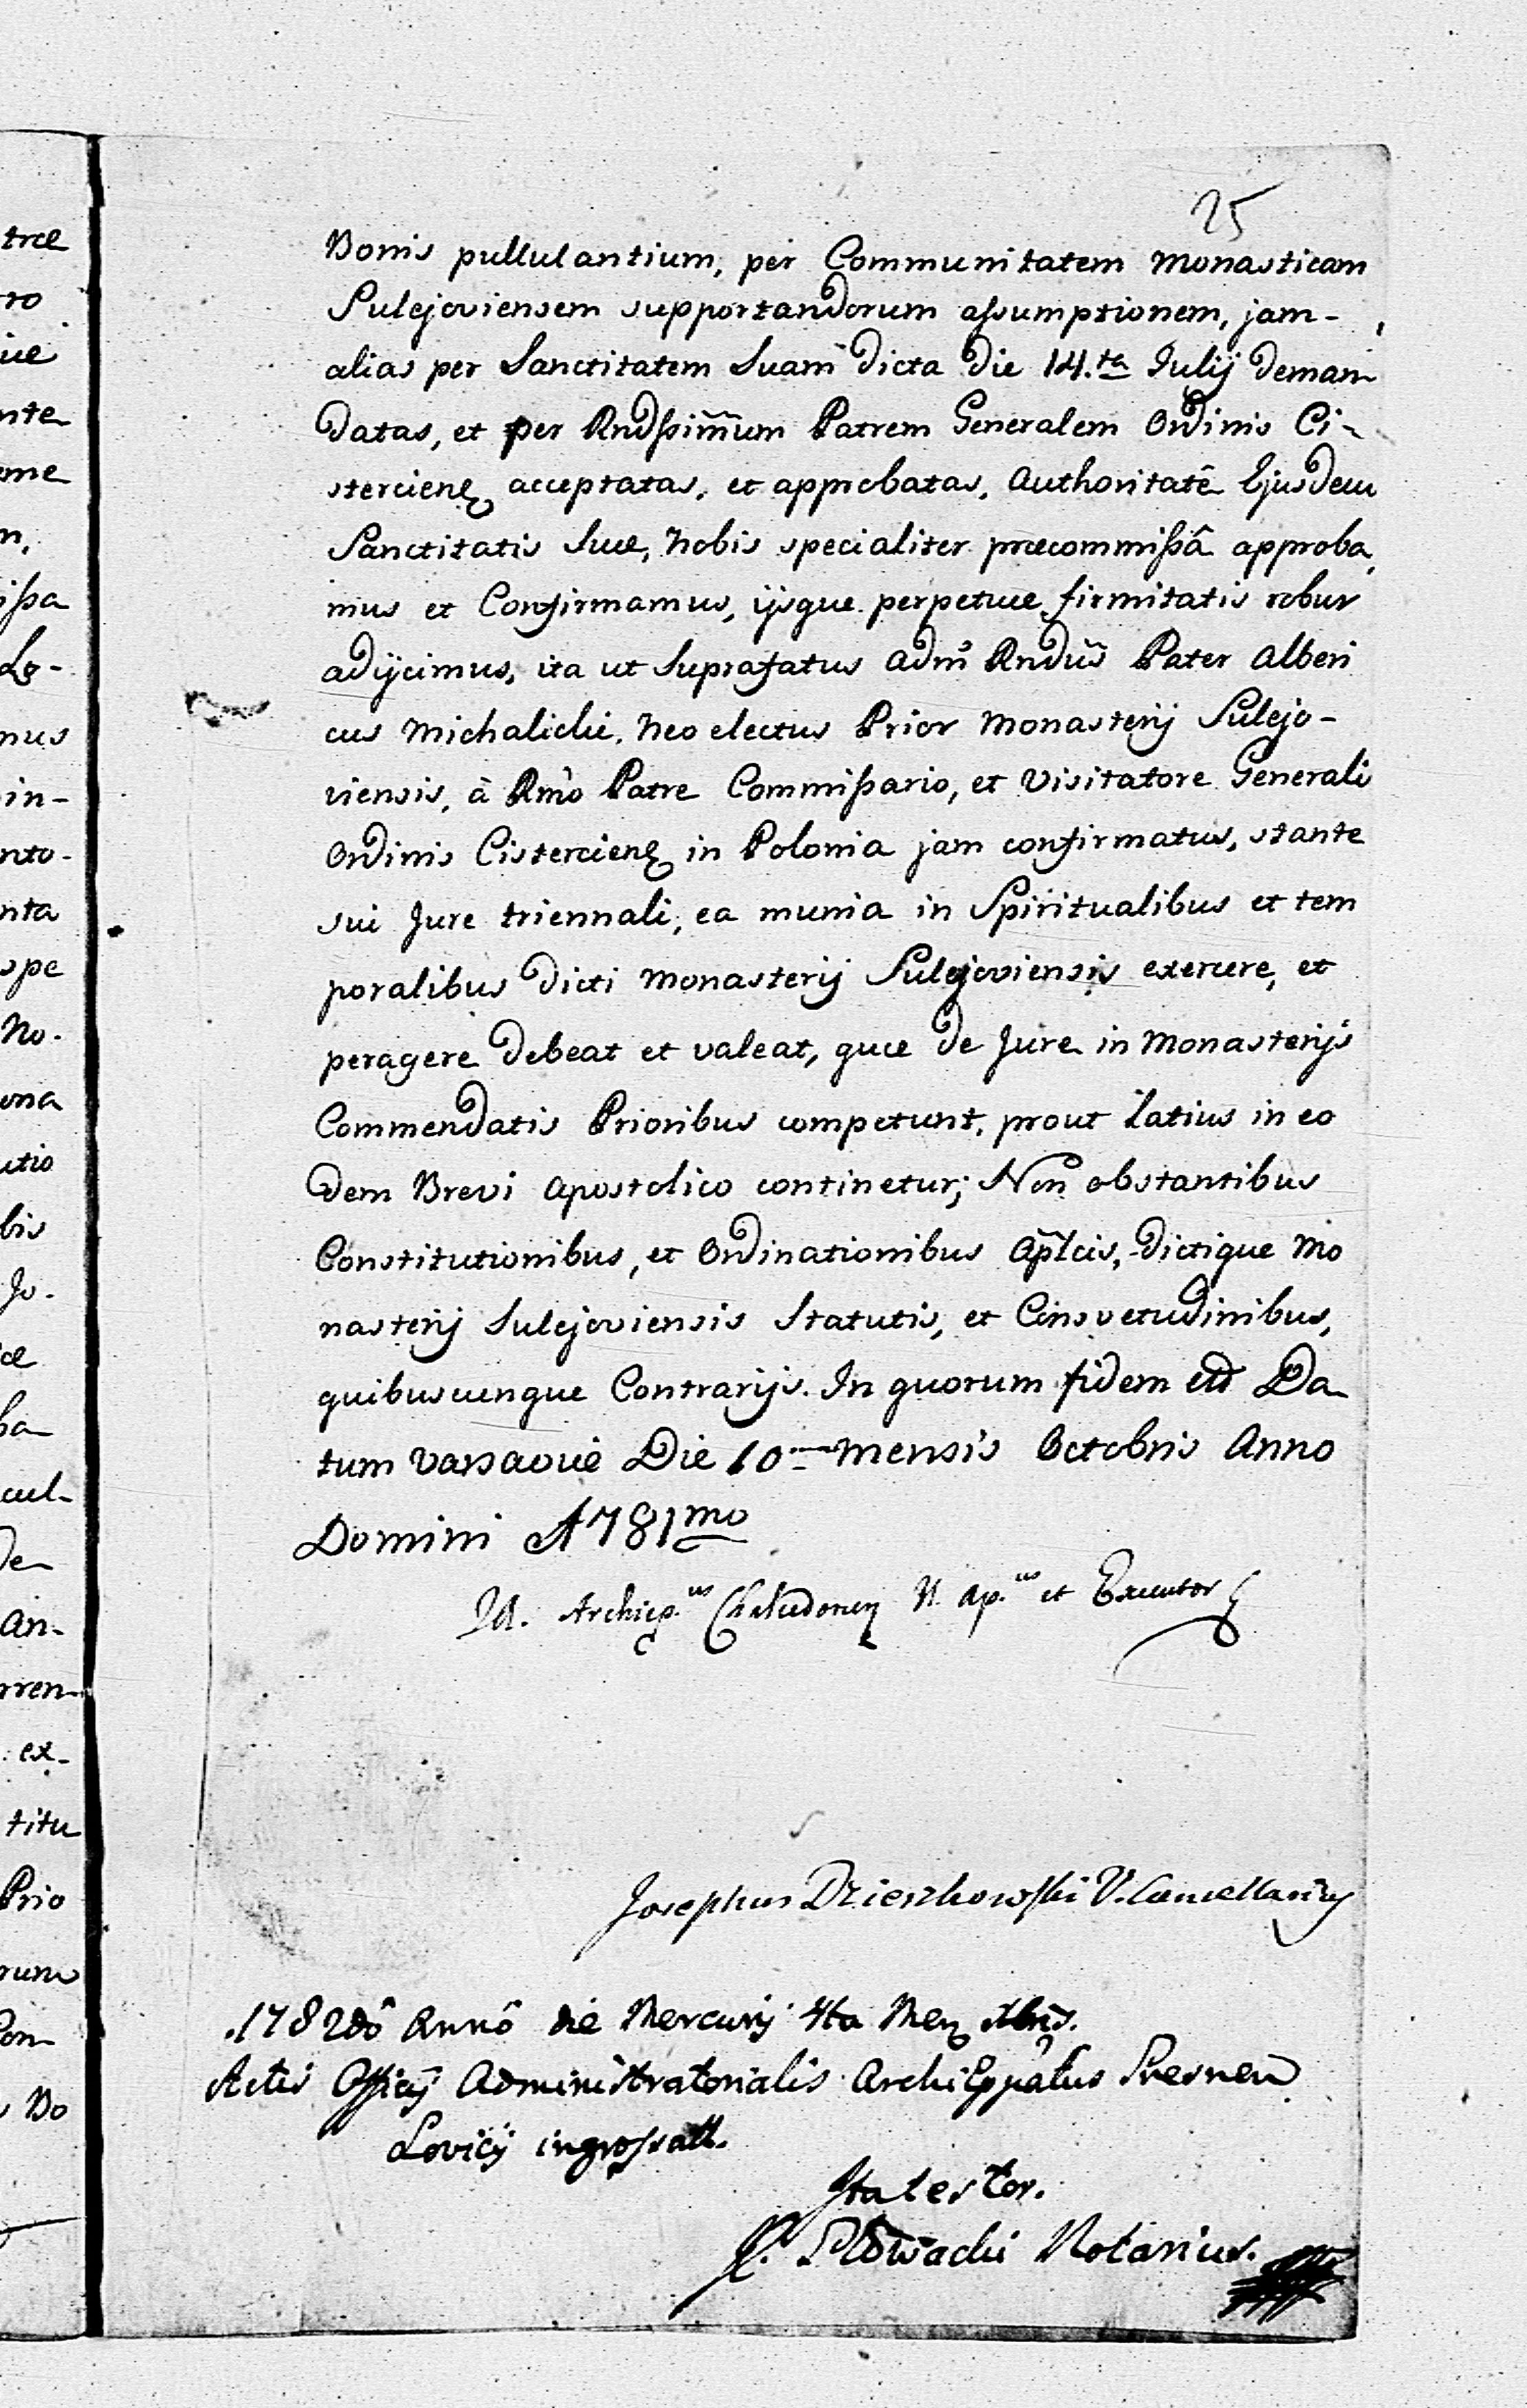 25
Bonis pullulantium, per Communitatem Monasticam
Sulejoviensem supportandorum assumptionem, jam-
alias per Sanctitatem Suam dicta Die 14.ta Julij deman
datas, et per Rndssim̃um Patrem Generalem Ordinis Ci-
stercienẽ acceptatas, et approbatas, Authoritatê Ejusdem
Sanctitatis Suæ, Nobis specialiter præcommissâ approba,
mus et Confirmamus, ijsque perpetuæ firmitatis robur
adijcimus, ita ut Suprafatus Adm̃ Rndũs Pater Alberi
cus Michalicki, Neo electus Prior Monasterij Sulejo-
viensis, à Rm̃o Patre Commissario, et Visitatore Generali
Ordinis Cistercienẽ in Polonia jam confirmatus, stante
sui Jure triennali, ea munia in Spiritualibus et tem
poralibus dicti Monasterij Sulejoviensis exercere, et
peragere debeat et valeat, quæ de Jure in Monasterijs
Commendatis Prioribus competunt, prout latius in eo
dem Brevi Apostolico continetur; Non obstantibus
Constitutionibus, et Ordinationibus Ap̃lcis, dictique Mo
nasterij Sulejoviensis Statutis, et Consvetudinibus,
quibuscunque Contrarijs. In quorum fidem Da
tum Varsaviæ Die 10ma Mensis Octobris Anno
Domini 1781mo
J.A. Archiep.us Chalcedonen N. Ap.us et Executor
Josephus Dzieszkowski V. Cancellarius
1782dô Annô die Mercurij 4ta Men
Actis Officij Administratorialis ArchiEppatus Gnesnen
Lovicij ingrossatt.
Ita testor.
Notarius.
træ
ro
nte
eme
n,
issa
Lo-
mus
in-
nto-
nta
spe
No.
ona
utio
bis
Jo.
cul-
De
an-
rren-
ex-
titu
Prio
rum
Con
Bo